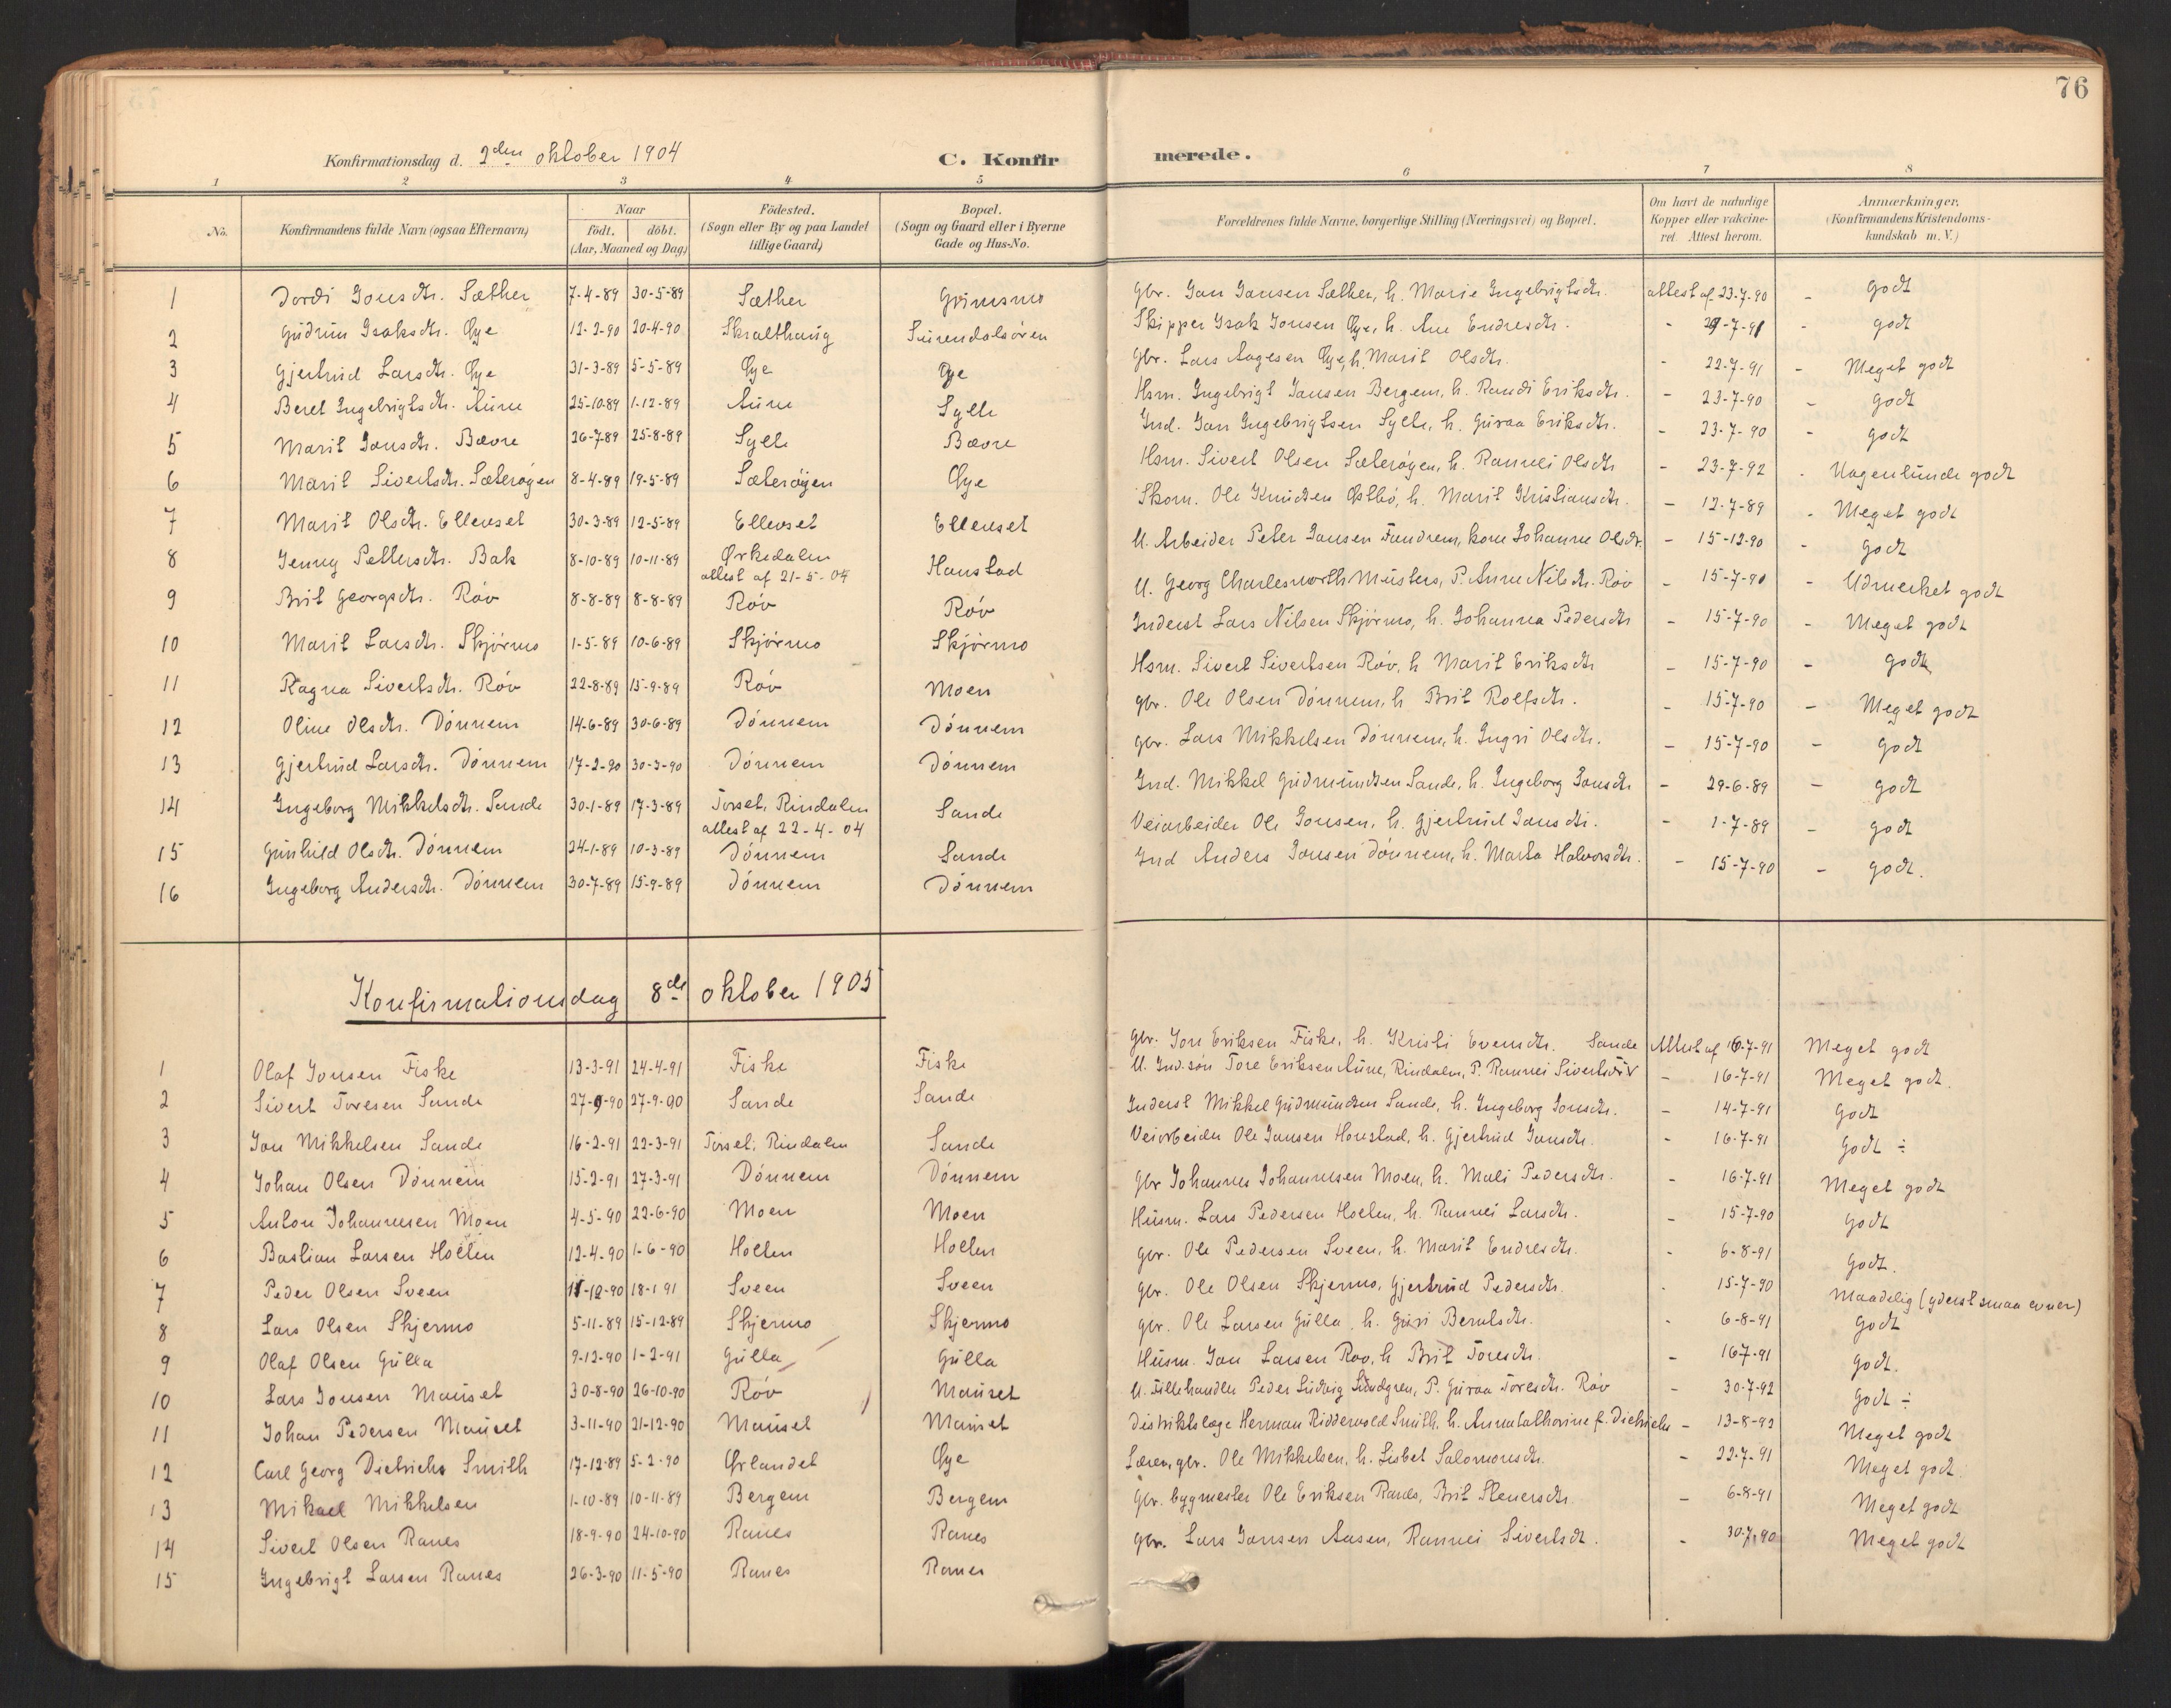 76
Konfirmationsdag d. 2den oktober 1904
C. Konfirmerede.
1 2 3 4 5 6 7 8
No. | Konfirmandens fulde Navn (ogsaa Efternavn) | Naar födt. | döbt. (Aar, Maaned og Dag) | Födested. (Sogn eller By og paa Landet tillige Gaard) | Bopæl. (Sogn og Gaard eller i Byerne Gade og Hus-No. | Forældrenes fulde Navne, borgerlige Stilling (Næringsvei) og Bopæl. | Om havt de naturlige Kopper eller vakcineret. Attest herom. | Anmærkninger. (Konfirmandens Kristendomskundskab m. V.)
1 Jordi Jonsdtr. Sæther 7-4-89 30-5-89 Sæther Grimsmo Gbr. Jon Jonsen Sæther, h. Marie Ingebrigtsdtr. attest af 23-7-90 - godt
2 Gudrun Isaksdtr. Øye 12-2-90 20-4-90 Skralthaug Surendalsøren Skipper Isak Jonsen Øye, h. Ane Endresdtr. - 29-7-91 - godt
3 Gjertrud Larsdtr. Øye 31-3-89 5-5-89 Øye Øye Gbr. Lars Aagesen Øye, h. Marit Olsdtr. - 22-7-91 - Meget godt
4 Beret Ingebrigtsdtr. Aune 25-10-89 1-12-89 Aune Sylte Hsm. Ingebrigt Jonsen Bergem, h. Randi Eriksdtr. - 23-7-90 - godt
5 Marit Jonsdtr. Bævre 26-7-89 25-8-89 Sylte Bævre Ind. Jon Ingebrigtsen Sylte, h. Guraa Eriksdtr. - 23-7-90 - godt
6 Marit Sivertsdtr. Sæterøyen 8-4-89 19-5-89 Sæterøyen Øye Hsm. Sivert Olsen Sæterøyen, h. Rannei Olsdtr - 23-7-92 - Nogenlunde godt
7 Marit Olsdtr. Ellevset 30-3-89 12-5-89 Ellevset Ellevset Skom. Ole Knudsen Østbø, h. Marit Kristiansdtr. - 12-7-89 - Meget godt
8 Jenny Pettersdtr. Bak 8-10-89 10-11-89 Ørkedalen attest af 21-5-04 Honstad U. Arbeider Peter Jonsen Fandrem, kone Johanne Olsdtr. - 15-12-90 - godt
9 Brit Georgsdtr. Röv 8-8-89 8-8-89 Röv Röv U. Georg Charlesworth Musters, P. Anne Nilsdtr. Röv - 15-7-90 - Udmerket godt
10 Marit Larsdtr. Skjörmo 1-5-89 10-6-89 Skjörmo Skjörmo Inderst Lars Nilsen Skjörmo, h. Johanna Pedersdtr - 15-7-90 - Meget godt
11 Ragna Sivertsdtr. Röv 22-8-89 15-9-89 Röv Moen Hsm. Sivert Sivertsen Röv, h Marit Eriksdtr - 15-7-90 - godt
12 Oline Olsdtr. Dönnem 14-6-89 30-6-89 Dönnem Dönnem gbr. Ole Olsen Dönnem, h Brit Rolfsdtr. - 15-7-90 - Meget godt
13 Gjertrud Larsdtr. Dönnem 17-2-90 30-3-90 Dönnem Dönnem gbr. Lars Mikkelsen Dönnem, h. Ingri Olsdtr. - 15-7-90 - godt
14 Ingeborg Mikkelsdtr. Sande 30-1-89 17-3-89 Torset, Rindalen attest af 22-4-04 Sande Ind. Mikkel Gudmundsen Sande, h. Ingeborg Jonsdtr - 29-6-89 - godt
15 Gunhild Olsdtr. Dönnem 24-1-89 10-3-89 Dönnem Sande Veiarbeider Ole Jonsen, h. Gjertrud Jonsdtr. - 1-7-89 - godt
16 Ingeborg Andersdtr. Dönnem 30-7-89 15-9-89 Dönnem Dönnem Ind Anders Jonsen Dönnem, h. Marta Halvorsdtr. - 15-7-90 - godt.
Konfirmationsdag 8de oktober 1905
1 Olaf Jonsen Fiske 13-3-91 24-4-91 Fiske Fiske Gbr. Jon Eriksen Fiske, h. Kristi Evensdtr. Attest af 16-7-91 Meget godt
2 Sivert Toresen Sande 27-9-90 27-9-90 Sande Sande U. Ind.sön Tore Eriksen Aune, Rindalen, P. Rannei Sivertsdtr Sande - 16-7-91 Meget godt.
3 Jon Mikkelsen Sande 16-2-91 22-3-91 Torset, Rindalen Sande Inderst Mikkel Gudmundsen Sande, h. Ingeborg Jonsdtr. - 14-7-91 Godt
4 Johan Olsen Dönnem 15-2-91 27-3-91 Dönnem Dönnem Veiarbeider Ole Jonsen Honstad, h. Gjertrud Jonsdtr. - 16-7-91 Godt ÷
5 Anton Johannesen Moen 4-5-90 22-6-90 Moen Moen gbr Johannes Johannesen Moen, h. Mali Pedersdtr. - 16-7-91 Meget godt
6 Bastian Larsen Holten 12-4-90 1-6-90 Holten Holten Husm. Lars Pedersen Holten, h. Rannei Larsdtr. - 15-7-90 godt
7 Peder Olsen Sveen 11-12-90 18-1 91 Sveen Sveen gbr. Ole Pedersen Sveen, h. Marit Endresdtr. - 6-8-91 godt.
8 Lars Olsen Skjermo 5-11-89 15-12-89 Skjermo Skjermo gbr. Ole Olsen Skjermo, Gjertrud Pedersdtr. - 15-7-90 Maadelig (yderst smaa evner)
9 Olaf Olsen Gulla 9-12-90 1-2-91 Gulla Gulla gbr. Ole Larsen Gulla, h. Guri Berntsdtr. - 6-8-91 godt
10 Lars Jonsen Mauset 30-8-90 26-10-90 Röv Mauset Husm. Jon Larsen Röv, h Brit Toresdtr. - 16-7-91 godt.
11 Johan Pedersen Mauset 3-11-90 21-12-90 Mauset Mauset U. Fillehandler Peder Ludvig Lindgren, P. Guraa Toresdtr. Röv - 30-7-92 Godt ÷
12 Carl Georg Dietrichs Smith 17-12-89 5-2-90 Ørlandet Øye Distriktslæge Herman Riddervold Smith. h. Anna Cathorine f. Dietrichs - 13-8-92 Meget godt
13 Mikael Mikkelsen 1-10-89 10-11-89 Bergem Bergem Lærer, gbr. Ole Mikkelsen, h. Lisbet Salomonsdtr. - 22-7-91 Meget godt
14 Sivert Olsen Ranes 18-9-90 24-10-90 Ranes Ranes Gbr. bygmester Ole Eriksen Ranes, Brit Stenersdtr. - 6-8-91 Meget godt
15 Ingebrigt Larsen Ranes 26-3-90 11-5-90 Ranes Ranes gbr. Lars Jonsen Aasen, Rannei Sivertsdt. - 30-7-90 Meget godt